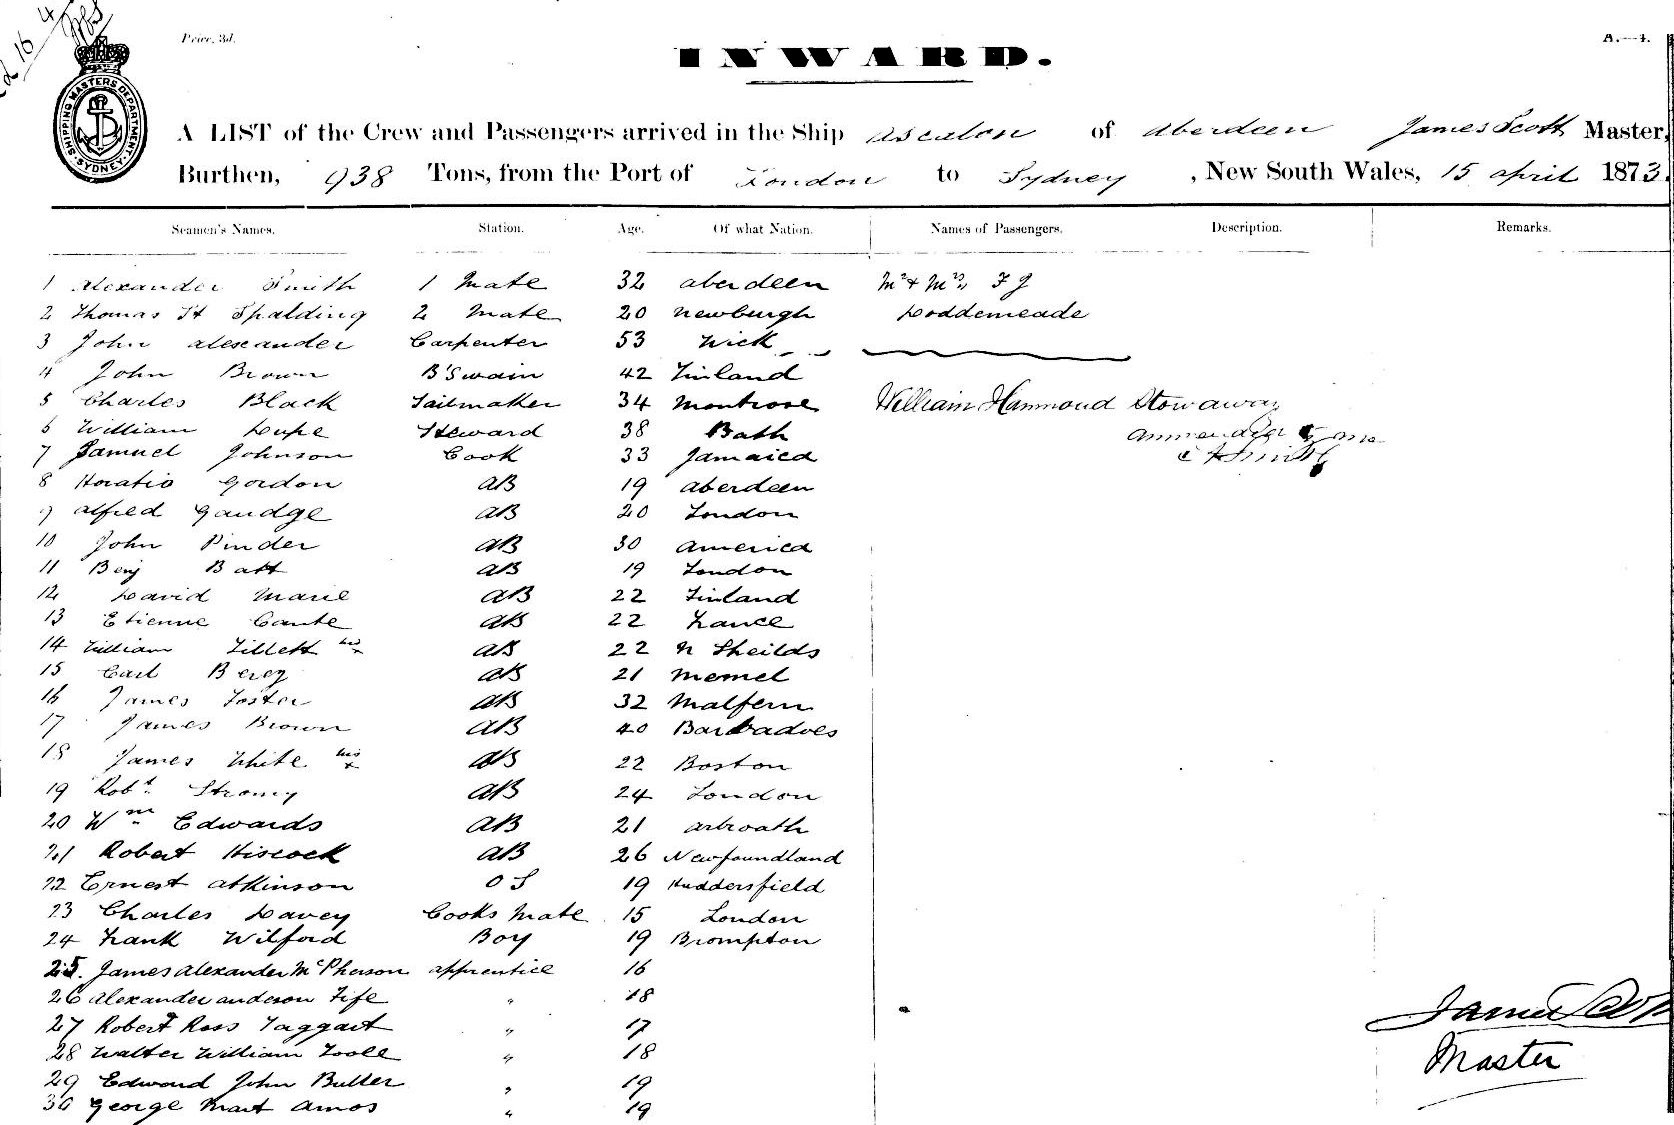 Price, 3d.
A.—4.
SHIPPING MASTERS DEPARTMENT
SYDNEY
INWARD.
A LIST of the Crew and Passengers arrived in the Ship Ascalon of Aberdeen James Scott Master,
Burthen, 938 Tons, from the Port of London to Sydney , New South Wales, 15 april 1873.
Seamen's Names. Station. Age. Of what Nation. Names of Passengers. Description. Remarks.
1 Alexander Smith 1 Mate 32 aberdeen Mr & Mrs F J
2 Thomas H Spalding 2 Mate 20 Newburgh Loddemeade
3 John alexander Carpenter 53 Wick
4 John Brown B'Swain 42 Finland
5 Charles Black Sailmaker 34 Montrose William Hammond Stowaway
6 William Lupe Steward 38 Bath
7 Samuel Johnson Cook 33 Jamaica
8 Horatio Gordon AB 19 aberdeen
9 alfred Gaudge AB 20 London
10 John Pinder AB 30 america
11 Benj Batt AB 19 London
12 David Marie AB 22 Finland
13 Etienne Cante AB 22 France
14 William Tillett his x AB 22 N Sheilds
15 Carl Berg AB 21 Memel
16 James Foster AB 32 Malfern
17 James Brown AB 40 Barbadoes
18 James White his x AB 22 Boston
19 Robt Strong AB 24 London
20 Wm Edwards AB 21 arbroath
21 Robert Hiscock AB 26 Newfoundland
22 Ernest atkinson OS 19 Huddersfield
23 Charles Davey Cooks Mate 15 London
24 Frank Wilford Boy 19 Brompton
25. James alexander McPherson apprentice 16
26 alexander anderson Fife " 18
27 Robert Ross Taggart " 17
28 Walter William Toole " 18
29 Edward John Butler " 19
30 George Mart amos " 19
James Scott
Master